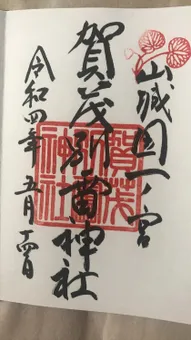 山城国一ノ宮
賀茂別雷神社
令和四年 五月十四日
賀茂
神社